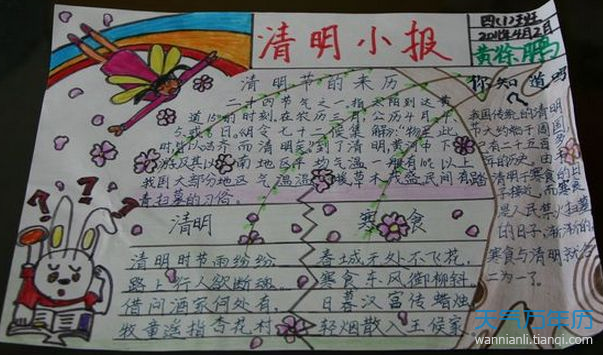 清明小报
四(1)班
2011年4月2日
黄徐鹏
清明节的来历
二十四节气之一。指太阳到达黄
道15的时刻,在农历三月公历4月4
或6日。《月令七十二候集解》:“物至此
时皆以洁齐而清明矣”到了清明,黄河中下
游及其以南地区平均气温一般有以上
我国大部分地区气温温暖草木茂盛民间有踏
青扫墓的习俗。
你知道吗
?
我国传统的清明
节大约始于周
已有二千五百多
年的历史。由于
清明于寒食的日
子接近,而寒食
是人民禁火扫墓
的日子,渐渐的
寒食与清明就
二为一了。
清明
清明时节雨纷纷
路上行人欲断魂。
借问酒家何处有,
牧童遥指杏花村
寒食
春城无处不飞花,
寒食东风御柳斜。
日暮汉宫传蜡烛,
轻烟散入王侯家
???
天气万年历
wannianli.tianqi.com